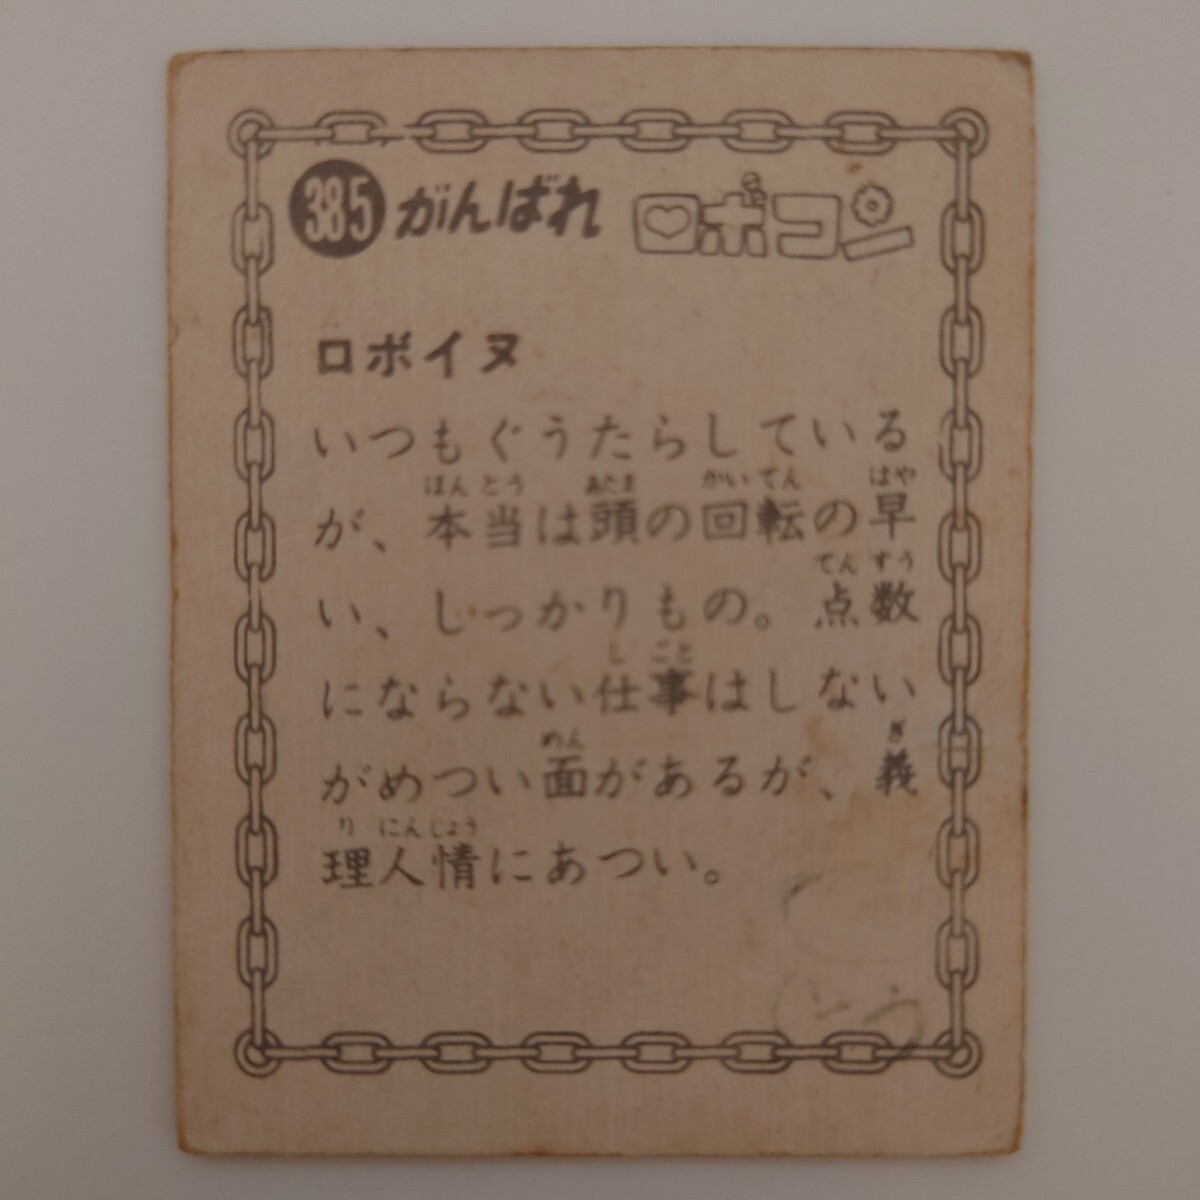 385 がんばれ ロボコン
ロボイヌ
いつもぐうたらしている
が、本当は頭の回転の早
い、しっかりもの。点数
にならない仕事はしない
がめつい面があるが、義
理人情にあつい。